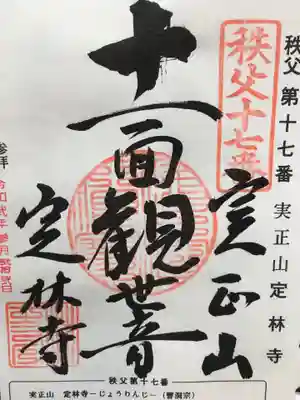 秩父 第十七番 実正山 定林寺
秩父十七番
実正山
十一面観世音
定林寺
参拝 令和
秩父第十七番
実正山 定林寺ーじょうりんじー(曹洞宗)